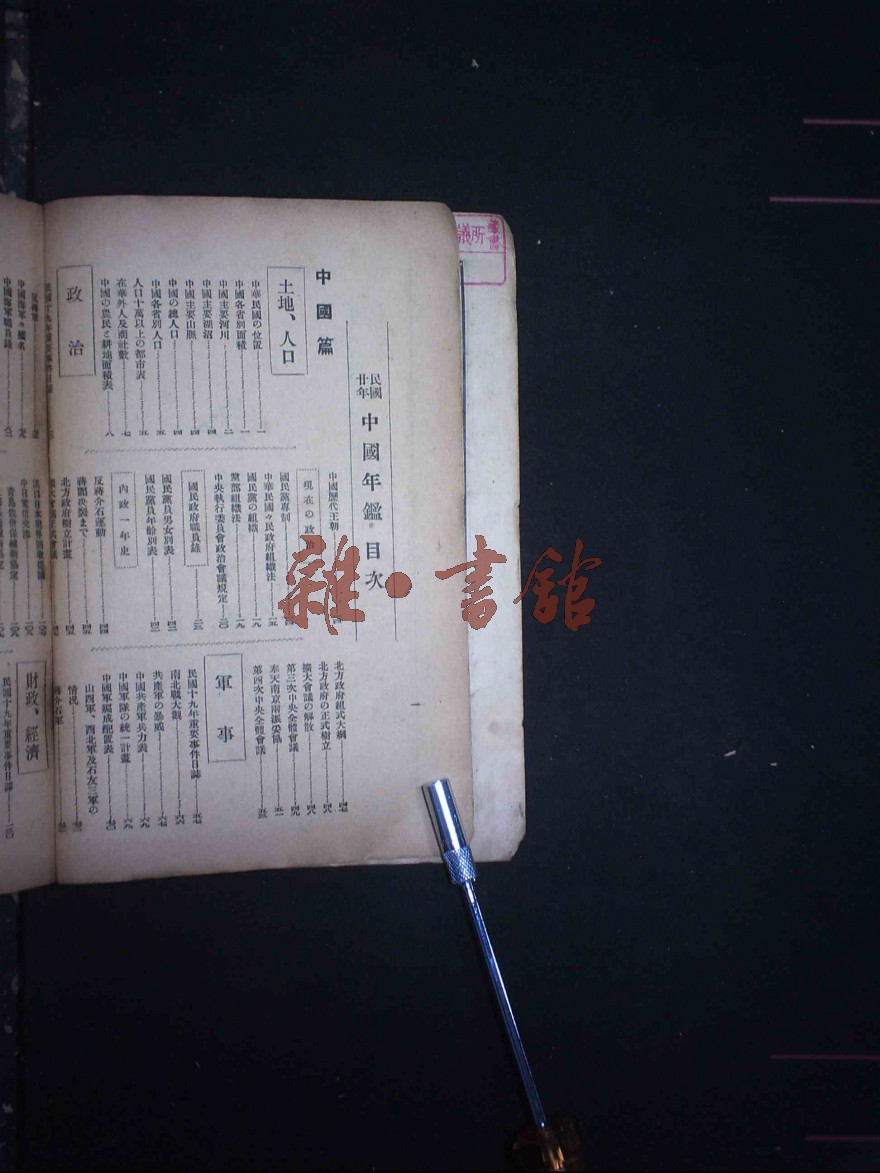 民國廿年 中國年鑑 目次
中國篇
土地、人口
中華民國の位置 一
中國各省別面積 一
中國主要河川 二
中國主要湖沼 四
中國主要山脈 四
中國の總人口 四
中國各省別人口 五
人口十萬以上の都市表 五
在華外人及商社數 七
中國の農民と耕地面積表 八
政治
民國十九年重要事件日誌
中國歷代王朝
現在の政
國民黨專制
中華民國々民政府組織法 一五
國民黨の組織 一九
黨部組織法 一九
中央執行委員會政治會議規定 三〇
國民政府職員錄 三三
國民黨員男女別表 四二
國民黨員年齡別表 四三
內政一年史
反蔣介石運動 四四
蔣閻決裂まで 四五
北方政府樹立計畫 四五
北方政府組式大綱 四七
北方政府の正式樹立 四八
擴大會議の解散 四八
第三次中央全體會議 四九
奉天南京兩派妥協 五一
第四次中央全體會議 五三
軍事
民國十九年重要事件日誌 五七
南北戰大觀 六六
共產軍の暴威 六七
中國共產軍兵力表 六九
中國軍隊の統一計畫 六九
中國軍編成配置表 七〇
山西軍、西北軍及石友三軍の
情況 七二
蔣介石軍
一
反蔣軍
中國海軍々艦名
中國海軍職員錄
財政、經濟
民國十九年重要事件日誌 一一〇
議所
叢書
雜·書舘